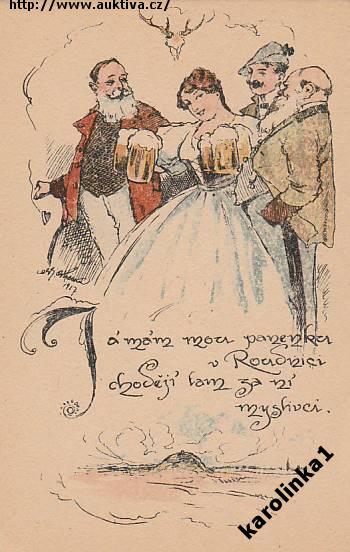 http://www.auktiva.cz/
1917
Já mám mou panenku
v Roudnici
chodějí tam za ní
myslivci.
karolinka1